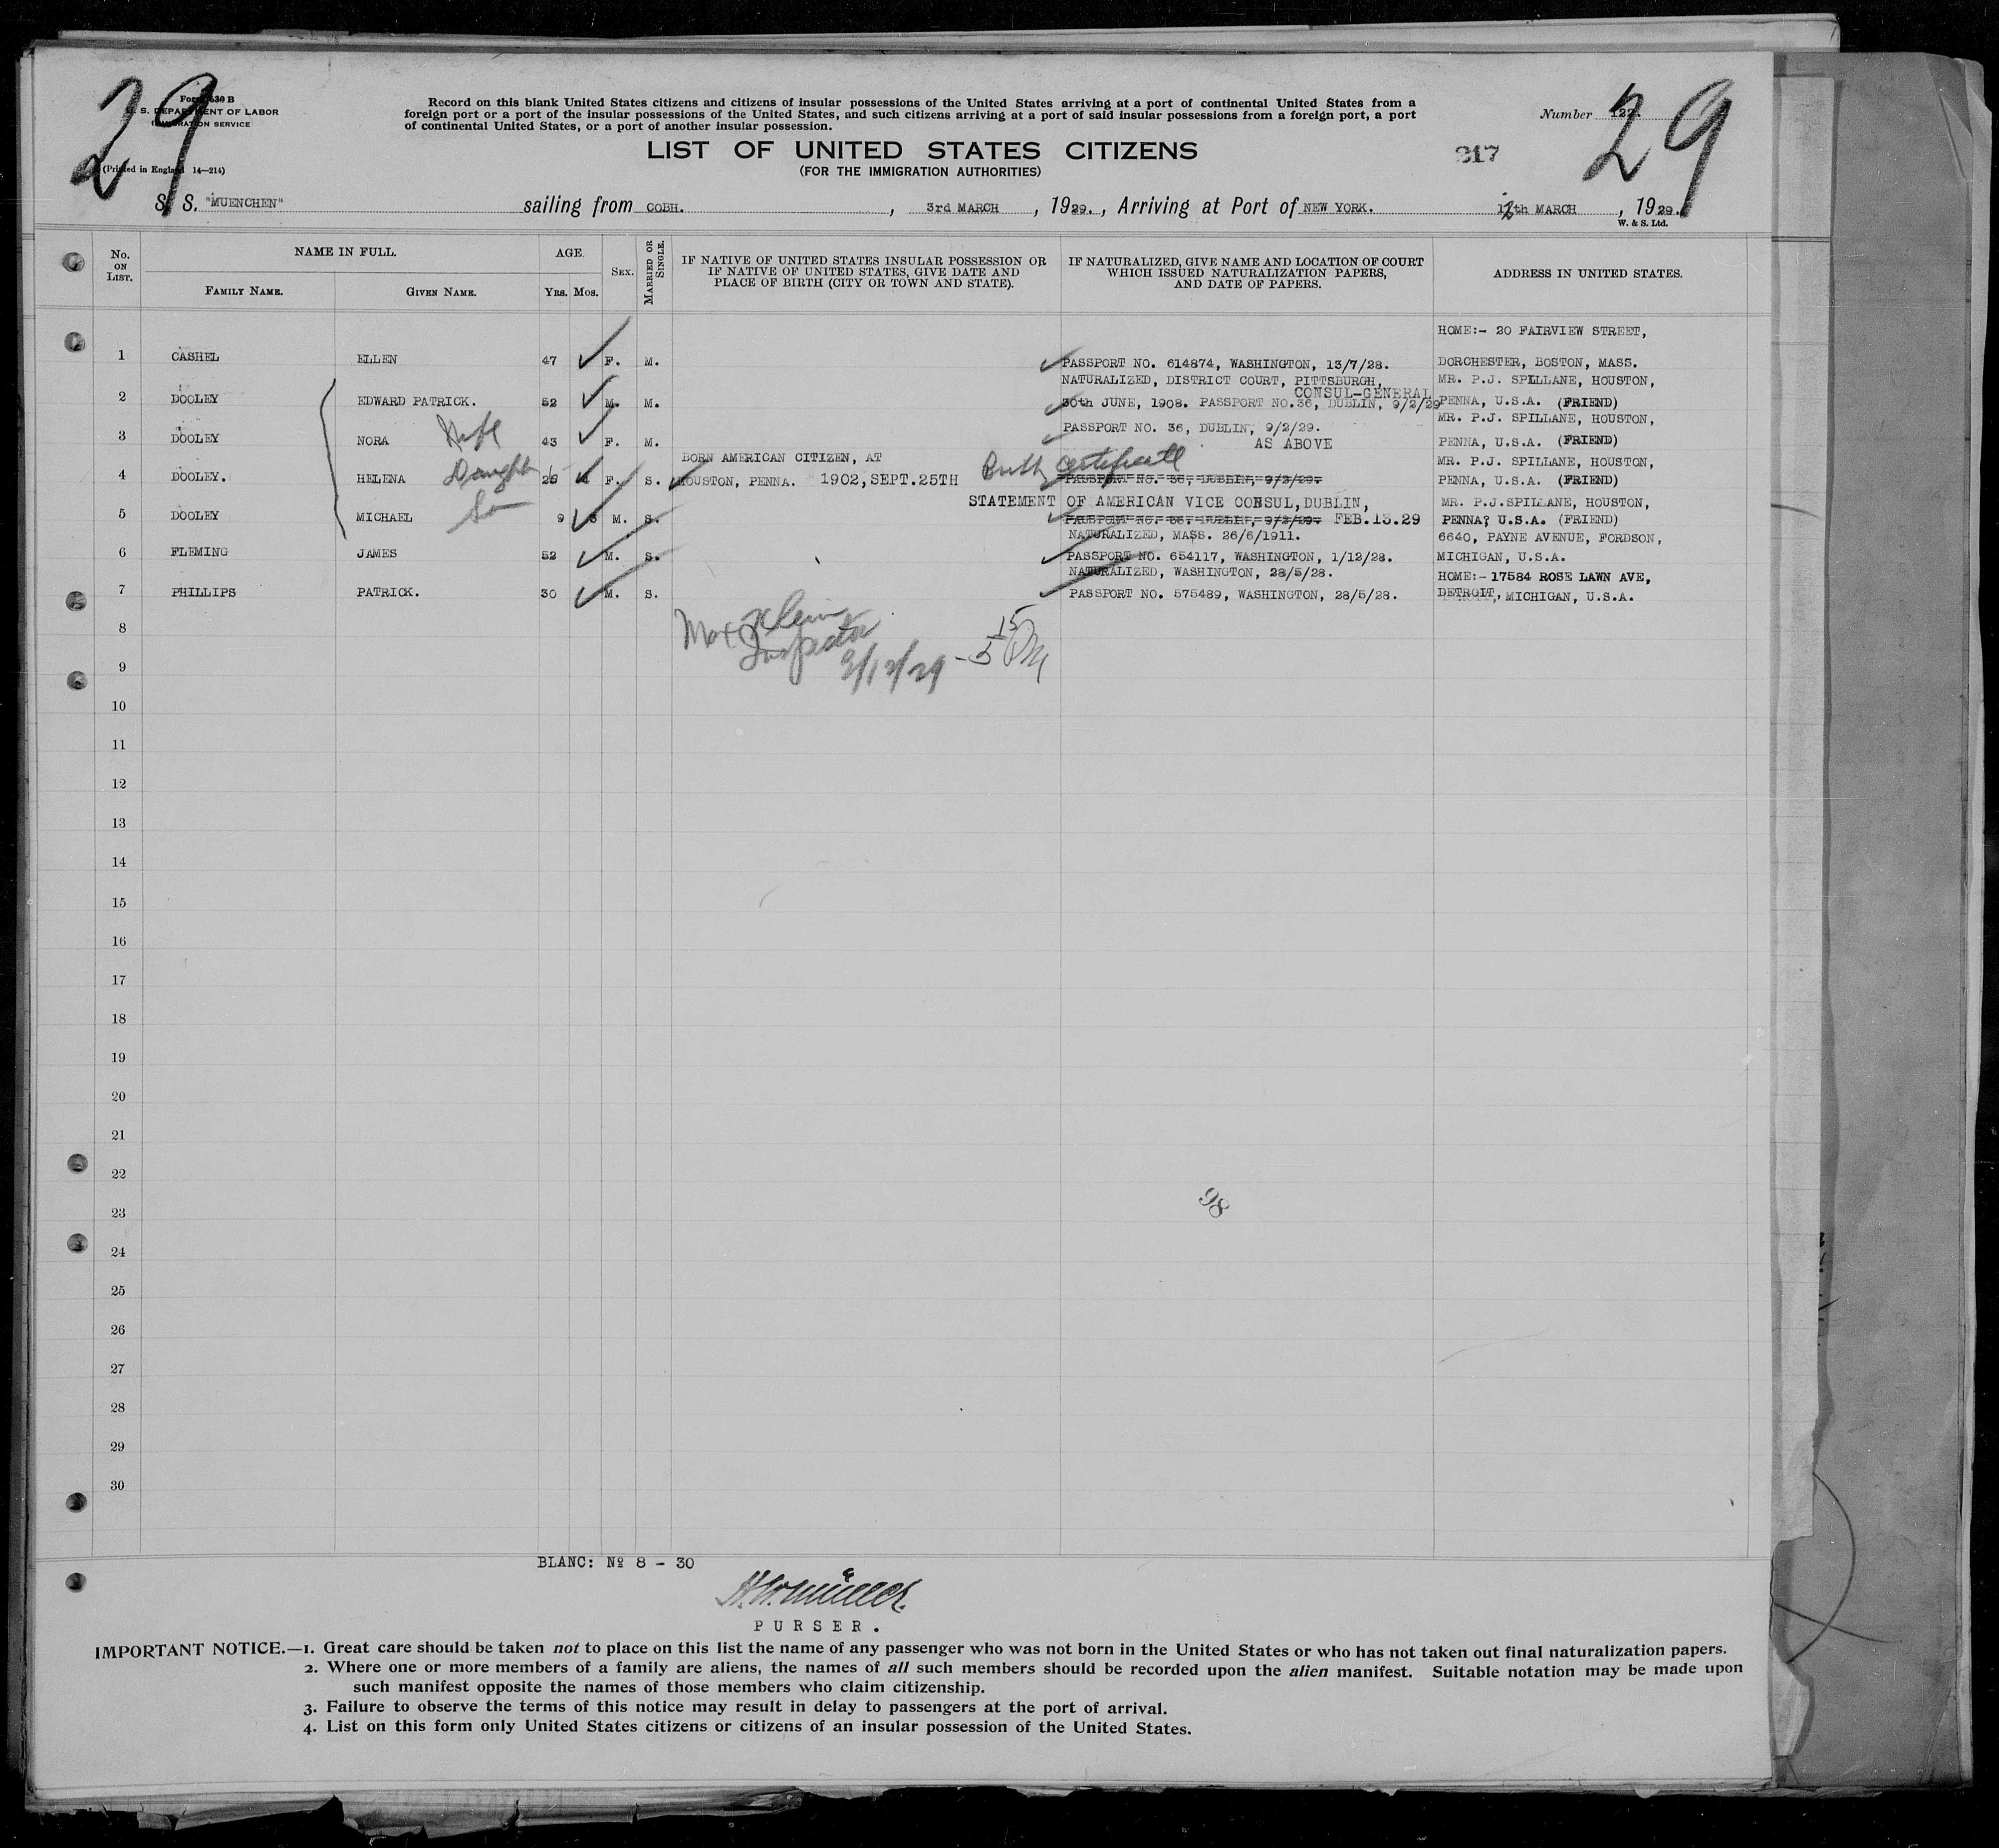 29
29
Form 630 B
U. S. DEPARTMENT OF LABOR
IMMIGRATION SERVICE
(Printed in England 14—214)
Record on this blank United States citizens and citizens of insular possessions of the United States arriving at a port of continental United States from a
foreign port or a port of the insular possessions of the United States, and such citizens arriving at a port of said insular possessions from a foreign port, a port
of continental United States, or a port of another insular possession.
Number
LIST OF UNITED STATES CITIZENS
(FOR THE IMMIGRATION AUTHORITIES)
317
S. S. "MUENCHEN" sailing from COBH. , 3rd MARCH , 1929. , Arriving at Port of NEW YORK. 12th MARCH , 1929.
W. & S. Ltd.
No. ON LIST. NAME IN FULL. AGE. SEX. MARRIED OR SINGLE. IF NATIVE OF UNITED STATES INSULAR POSSESSION OR IF NATIVE OF UNITED STATES, GIVE DATE AND PLACE OF BIRTH (CITY OR TOWN AND STATE). IF NATURALIZED, GIVE NAME AND LOCATION OF COURT WHICH ISSUED NATURALIZATION PAPERS, AND DATE OF PAPERS. ADDRESS IN UNITED STATES.
FAMILY NAME. GIVEN NAME. YRS. MOS.
HOME:- 20 FAIRVIEW STREET,
1 CASHEL ELLEN 47 F. M. PASSPORT NO. 614874, WASHINGTON, 13/7/28. DORCHESTER, BOSTON, MASS.
NATURALIZED, DISTRICT COURT, PITTSBURGH, MR. P.J. SPILLANE, HOUSTON,
CONSUL-GENERAL
2 DOOLEY EDWARD PATRICK. 52 M. M. 30th JUNE, 1908. PASSPORT NO.36, DUBLIN, 9/2/29 PENNA, U.S.A. (FRIEND)
MR. P.J. SPILLANE, HOUSTON,
PASSPORT NO. 36, DUBLIN, 9/2/29.
3 DOOLEY NORA Wife 43 F. M. AS ABOVE PENNA, U.S.A. (FRIEND)
BORN AMERICAN CITIZEN, AT Birth certificate MR. P.J. SPILLANE, HOUSTON,
4 DOOLEY. HELENA Daughter 26 F. S. HOUSTON, PENNA. 1902,SEPT.25TH PASSPORT NO. 36, DUBLIN, 9/2/29. PENNA, U.S.A. (FRIEND)
STATEMENT OF AMERICAN VICE CONSUL,DUBLIN, MR. P.J.SPILLANE, HOUSTON,
5 DOOLEY MICHAEL Son 9 M. S. PASSPORT NO. 36, DUBLIN, 9/2/29. FEB.13.29 PENNA, U.S.A. (FRIEND)
NATURALIZED, MASS. 26/6/1911. 6640, PAYNE AVENUE, FORDSON,
6 FLEMING JAMES 52 M. S. PASSPORT NO. 654117, WASHINGTON, 1/12/28. MICHIGAN, U.S.A.
NATURALIZED, WASHINGTON, 28/5/28. HOME:- 17584 ROSE LAWN AVE,
7 PHILLIPS PATRICK. 30 M. S. PASSPORT NO. 575489, WASHINGTON, 28/5/28. DETROIT, MICHIGAN, U.S.A.
8
Max
Inspector
3/12/29 - 5 15 PM
9
10
11
12
13
14
15
16
17
18
19
20
21
22
23
98
24
25
26
27
28
29
30
BLANC: Nº 8 - 30
PURSER.
IMPORTANT NOTICE.—1. Great care should be taken not to place on this list the name of any passenger who was not born in the United States or who has not taken out final naturalization papers.
2. Where one or more members of a family are aliens, the names of all such members should be recorded upon the alien manifest. Suitable notation may be made upon
such manifest opposite the names of those members who claim citizenship.
3. Failure to observe the terms of this notice may result in delay to passengers at the port of arrival.
4. List on this form only United States citizens or citizens of an insular possession of the United States.